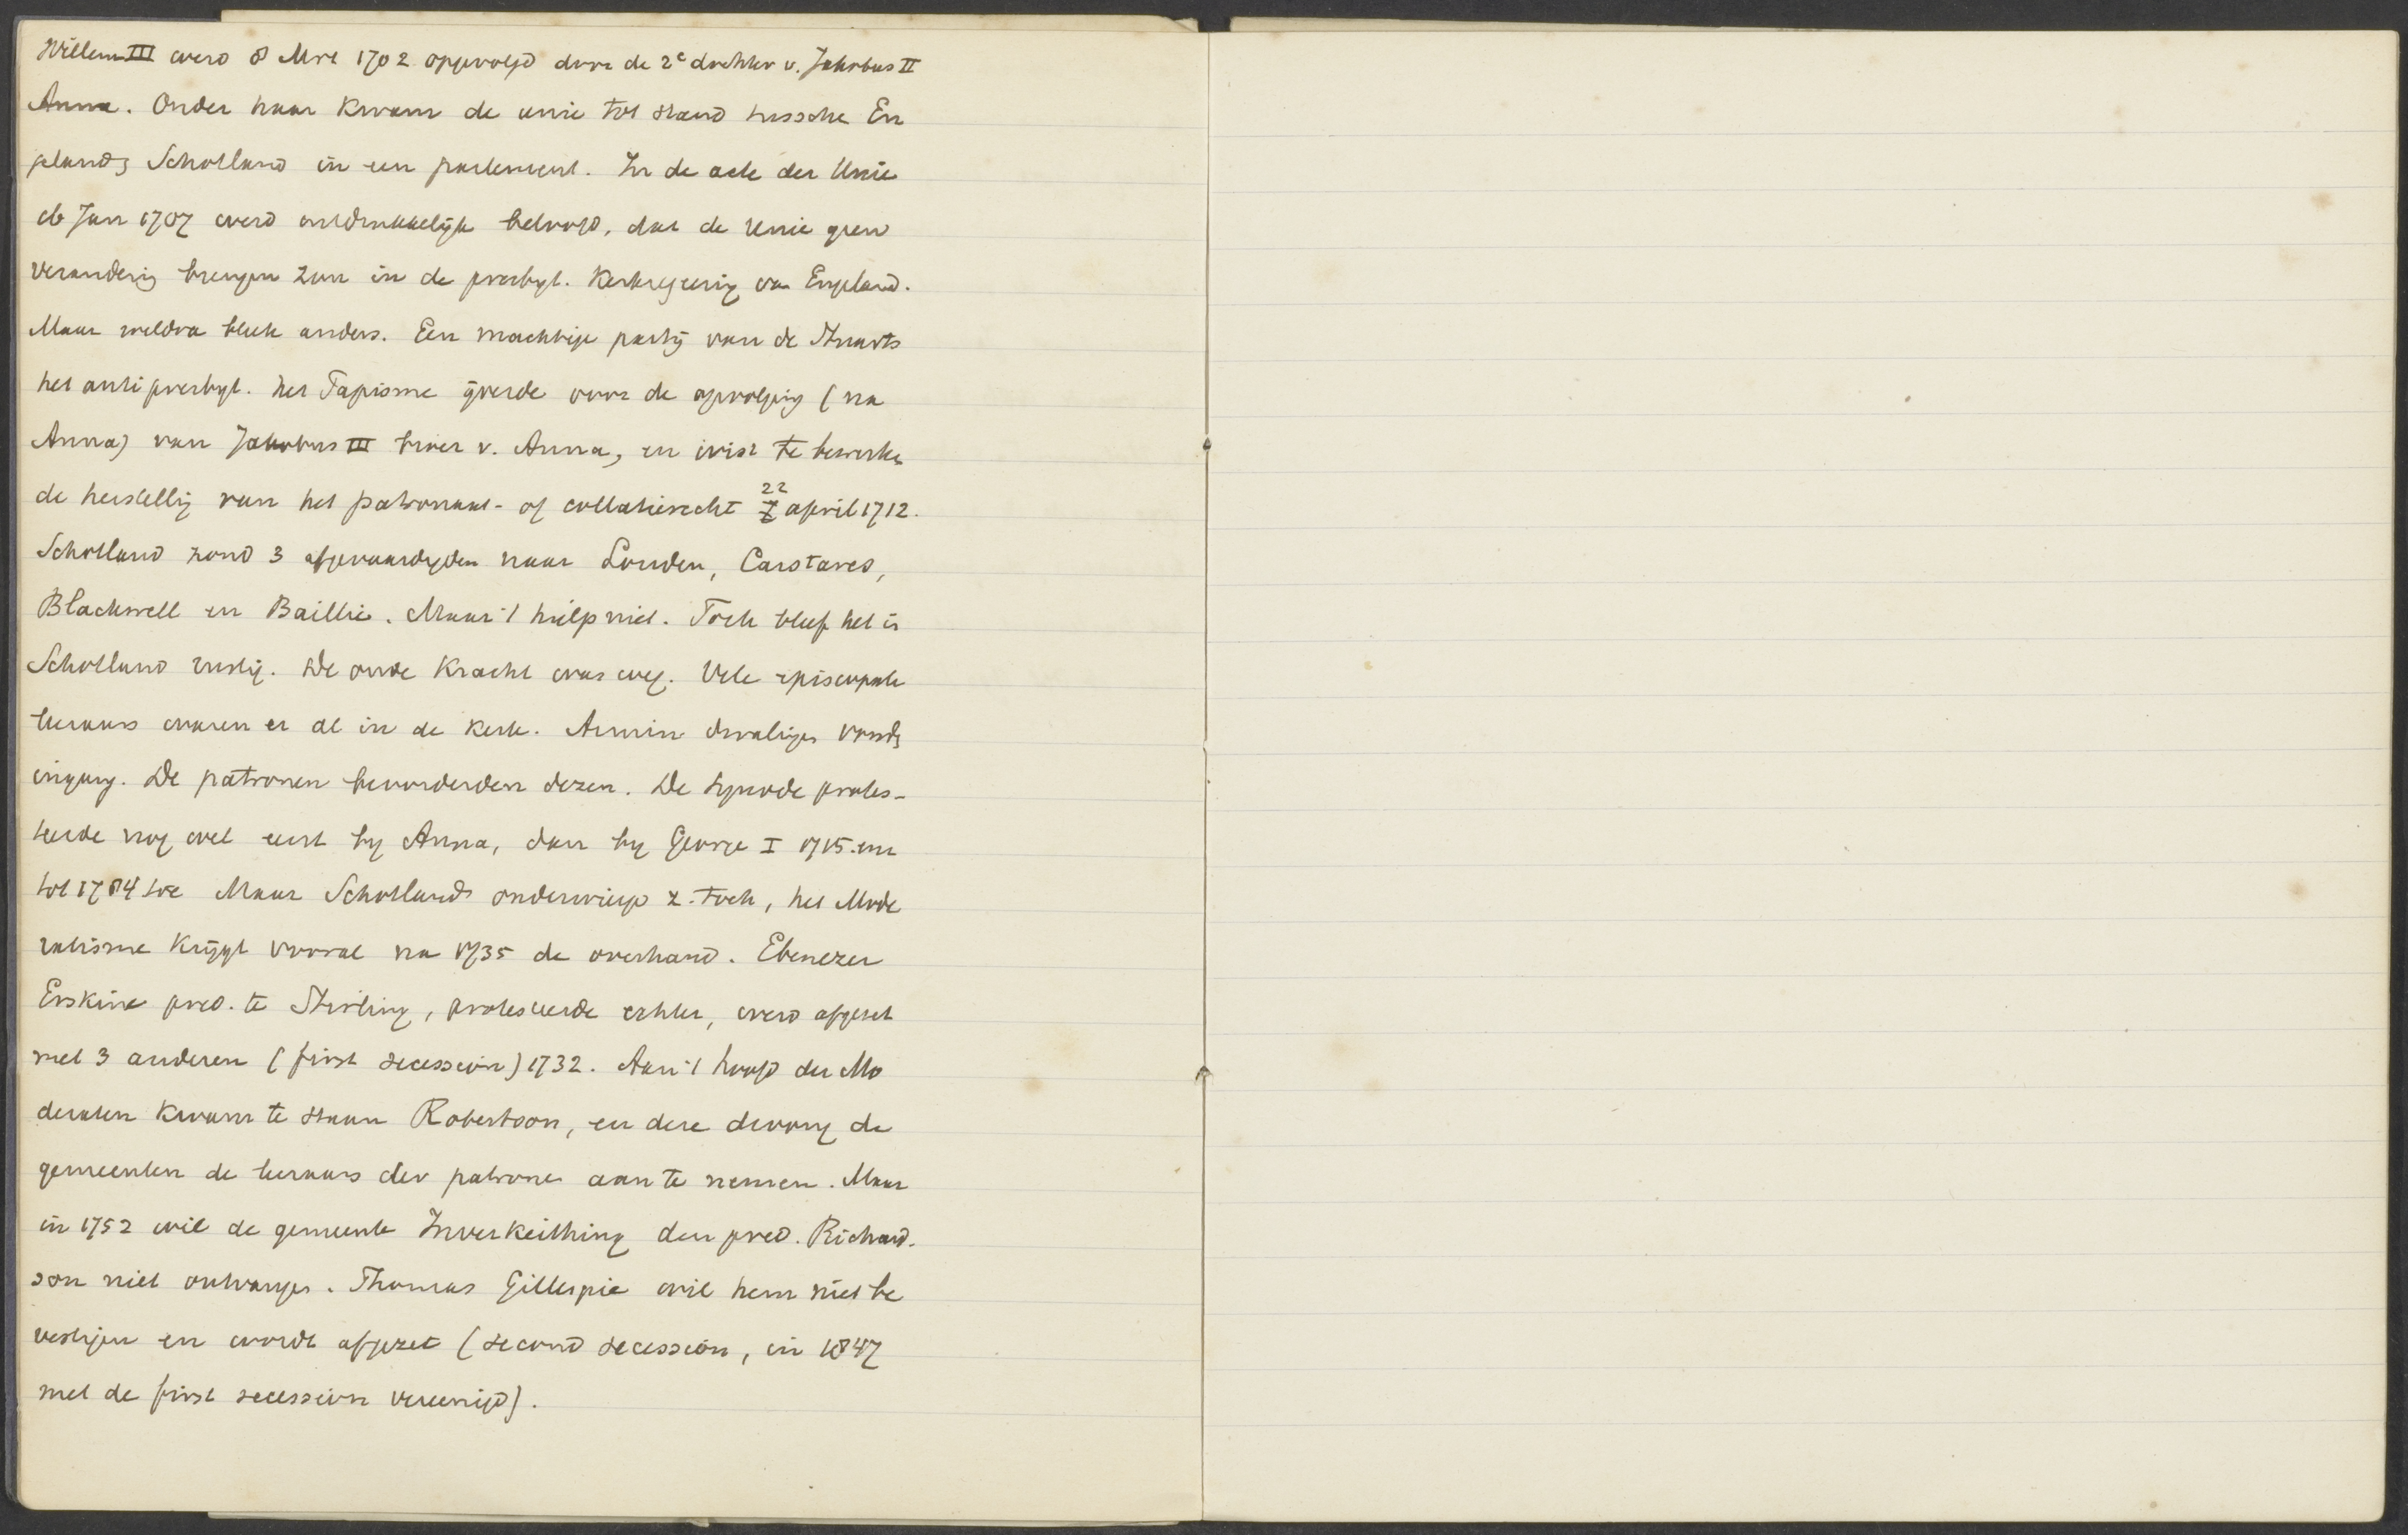 Willem III werd 8 Mrt 1702 opgevolgd door de 2e dochter v. Jakobus II
Anna. Onder haar kwam de unie tot stand tussche En
geland & Schotland in een parlement. In de acte der Unie
Jan 1707 werd uitdrukkelijk beloofd, dat de Unie geen
verandering brengen zou in de presbyt. Kerkregeering van England.
Maar weldra bleek anders. Een machtige partij van de Stuarts
het anti presbyt. het Papisme ijverde voor de opvolging (na
Anna) van Jakobus III broer v. Anna, en wist te bewerken
de herstelling van het patronaat- of collatierecht 22 april 1712.
Schotland zond 3 afgevaardigden naar Londen, Carstares,
Blackwell en Baillie. Maar 't hielp niet. Toch bleef het in
Schotland rustig. De oude Kracht was weg. Vele episcopale
leraars waren er al in de Kerk. Armin dwalingen vonden
ingang. De patronen bevorderden dezen. De Synode protes-
teerde nog wel eerst by Anna, dan by George I 1715 en
tot 1784 toe Maar Schotland onderwierp z. toch, het Mode
ratisme krijgt vooral na 1735 de overhand. Ebenezer
Erskine pred. te Stirling, protesteerde echter, werd afgezet
met 3 anderen (first secession) 1732. Aan 't hoofd der Mo
deraten kwam te staan Robertson, en deze dwong de
gemeenten de leraars der patrone aan te nemen. Maar
in 1752 wil de gemeente Inverkeithing den pred. Richard-
son niet ontvangen. Thomas Gillespie wil hem niet be
vestigen en wordt afgezet (second secession, in 1847
met de first secession vereenigd).